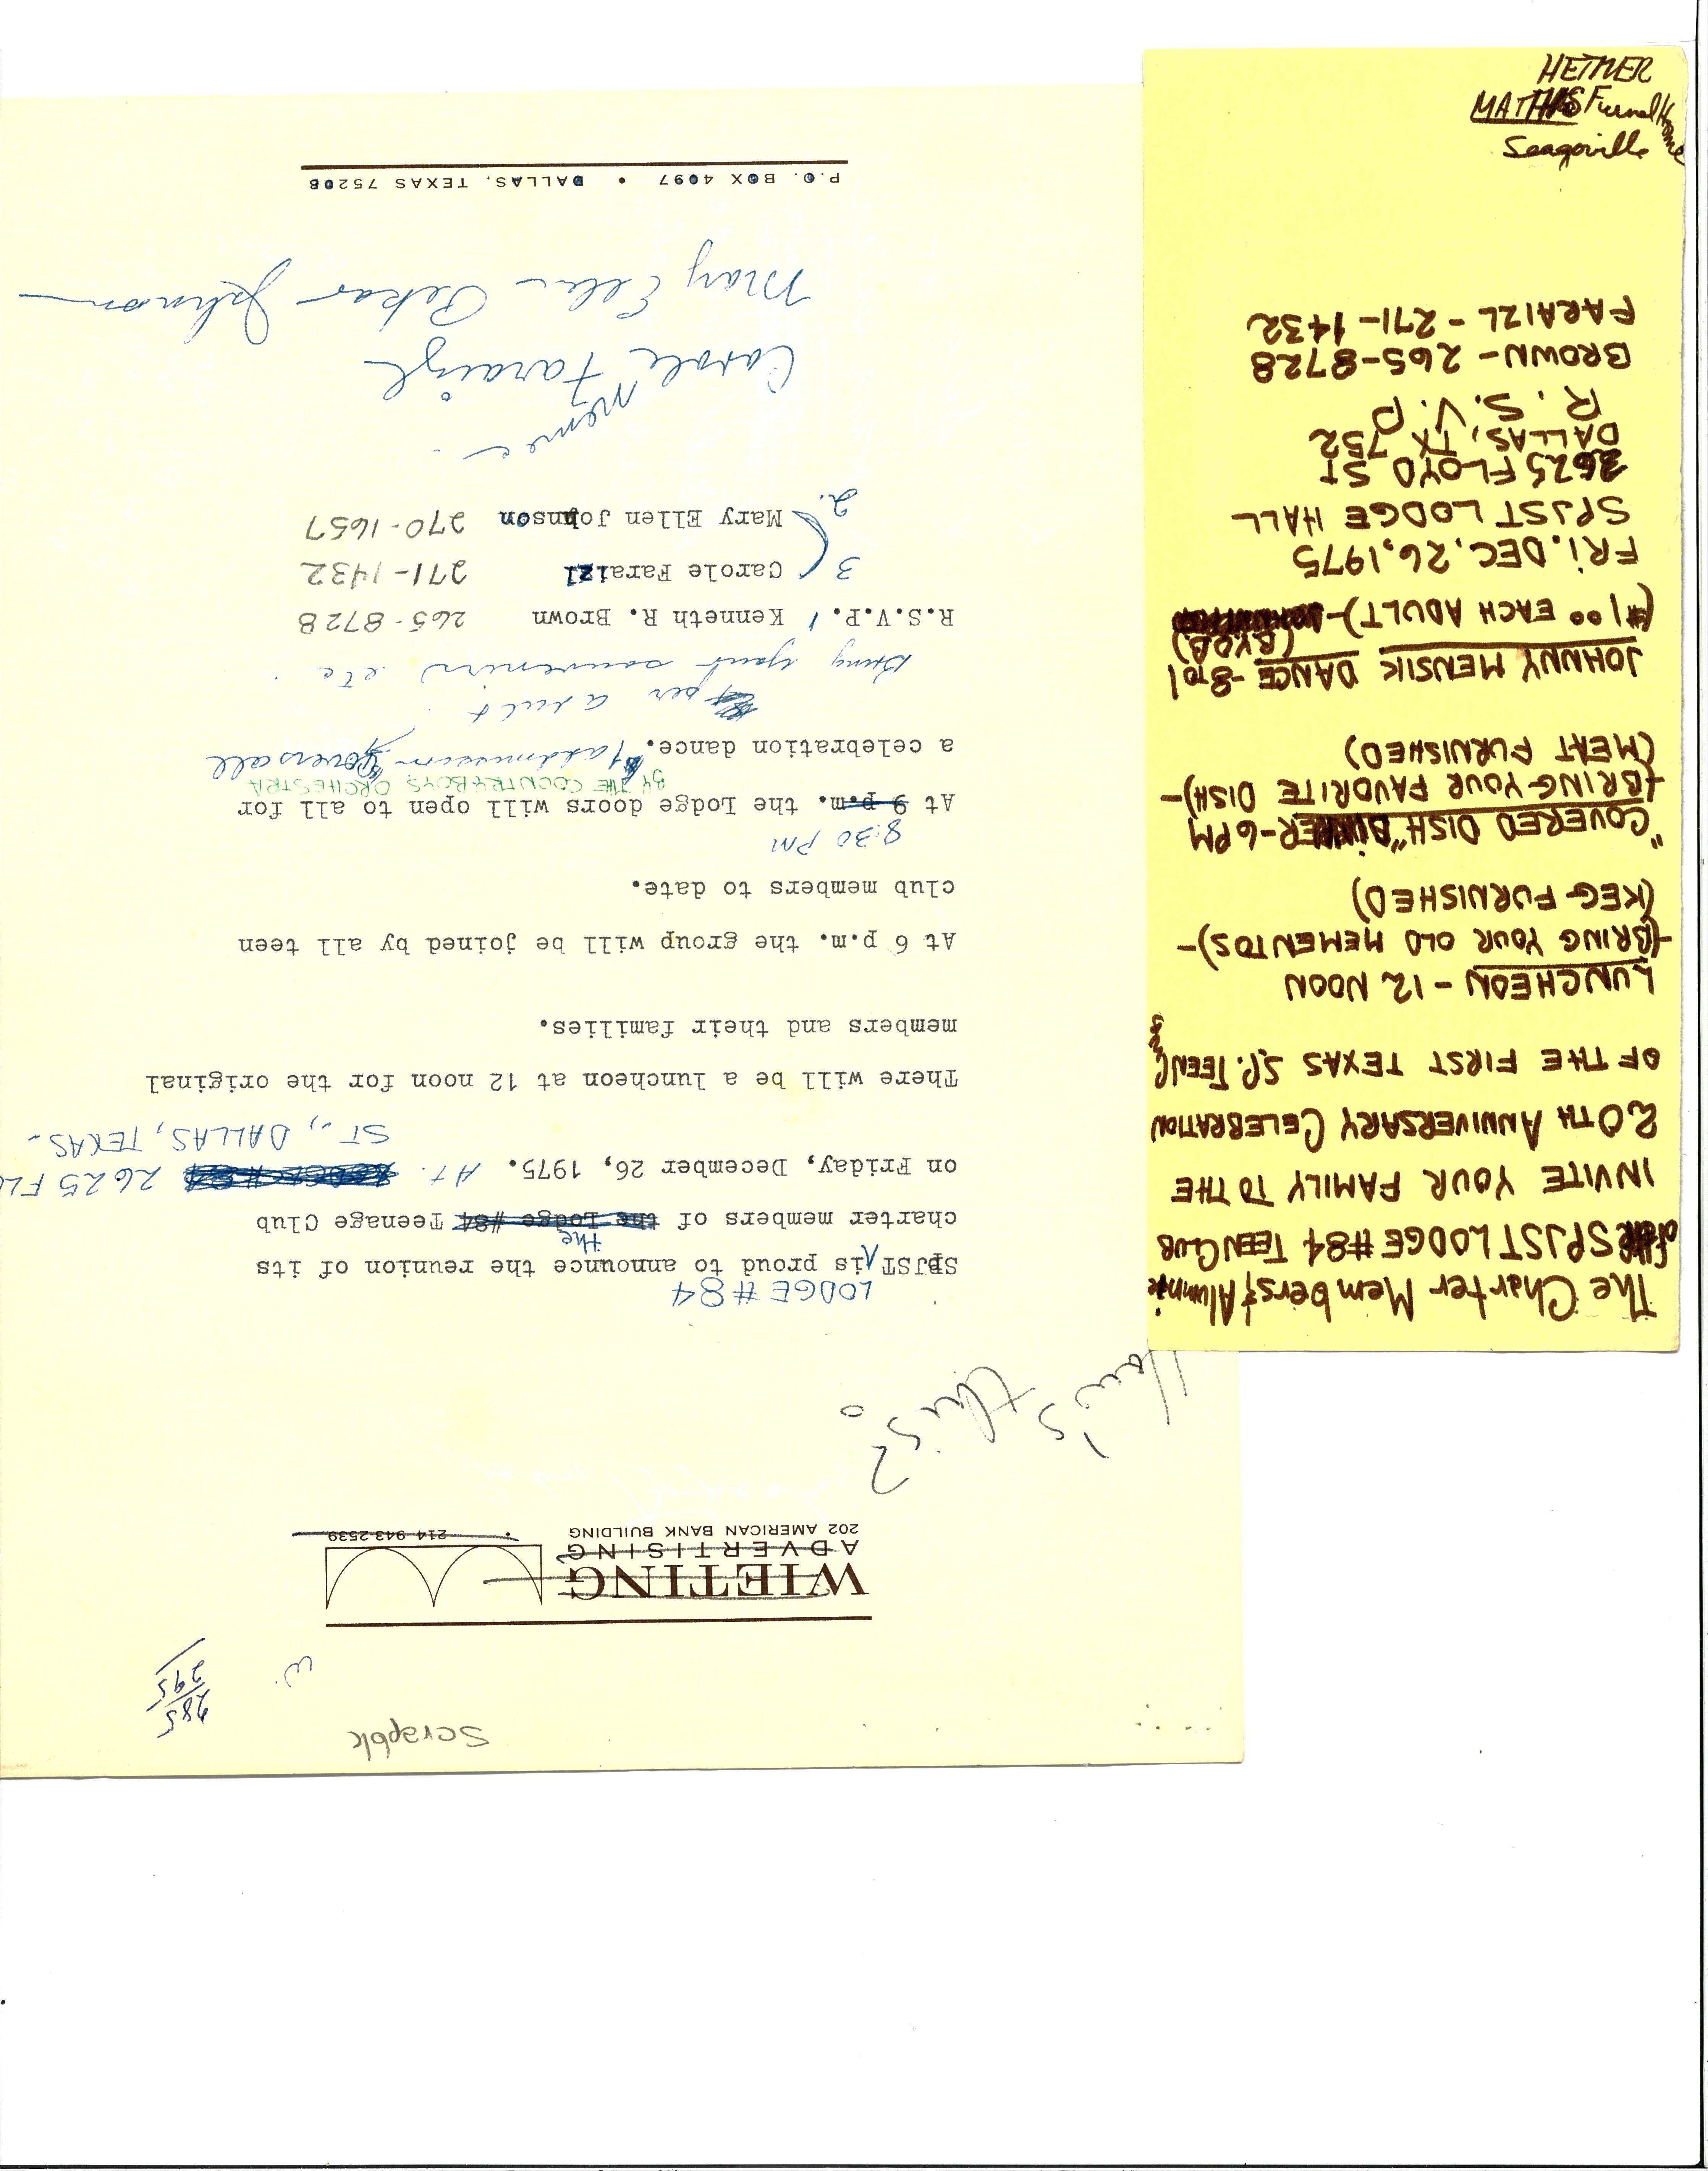 Scrapbk
285
295
WIETING
ADVERTISING
202 AMERICAN BANK BUILDING • 214-943-2539
How's this?
LODGE #84
SPJST is proud to announce the reunion of its
the
charter members of the Lodge #84 Teenage Club
on Friday, December 26, 1975. At 2625 FL
ST., DALLAS, TEXAS.
There will be a luncheon at 12 noon for the original
members and their families.
At 6 p.m. the group will be joined by all teen
club members to date.
8:30 PM
At 9 p.m. the Lodge doors will open to all for
BY THE COUNTRYBOYS ORCHESTRA
a celebration dance. admission covers all
per adult
Bring your souvenirs etc.
R.S.V.P. 1 Kenneth R. Brown 265-8728
3 Carole Faraizl 271-1432
2. Mary Ellen Johnson 270-1657
Carole Faraizl
Mary Ellen Pekar Johnson
P.O. BOX 4097 • DALLAS, TEXAS 75208
The Charter Members & Alumnie
of SPJST LODGE #84 TEEN CLUB
INVITE YOUR FAMILY TO THE
20TH ANNIVERSARY CELEBRATION
OF THE FIRST TEXAS S.P. TEEN Club
LUNCHEON - 12 NOON
-(BRING YOUR OLD MEMENTOS)-
(KEG FURNISHED)
"COVERED DISH" DINNER-6PM
-(BRING YOUR FAVORITE DISH)-
(MEAT FURNISHED)
JOHNNY MENSIK DANCE-8 TO 1
($1.00 EACH ADULT)- (BYOB)
FRI. DEC. 26, 1975
SPJST LODGE HALL
2625 FLOYD ST
DALLAS, TX 752
R.S.V.P
BROWN - 265-8728
FARAIZL - 271-1432
HETMER
MATHIS Funeral Home
Seagoville